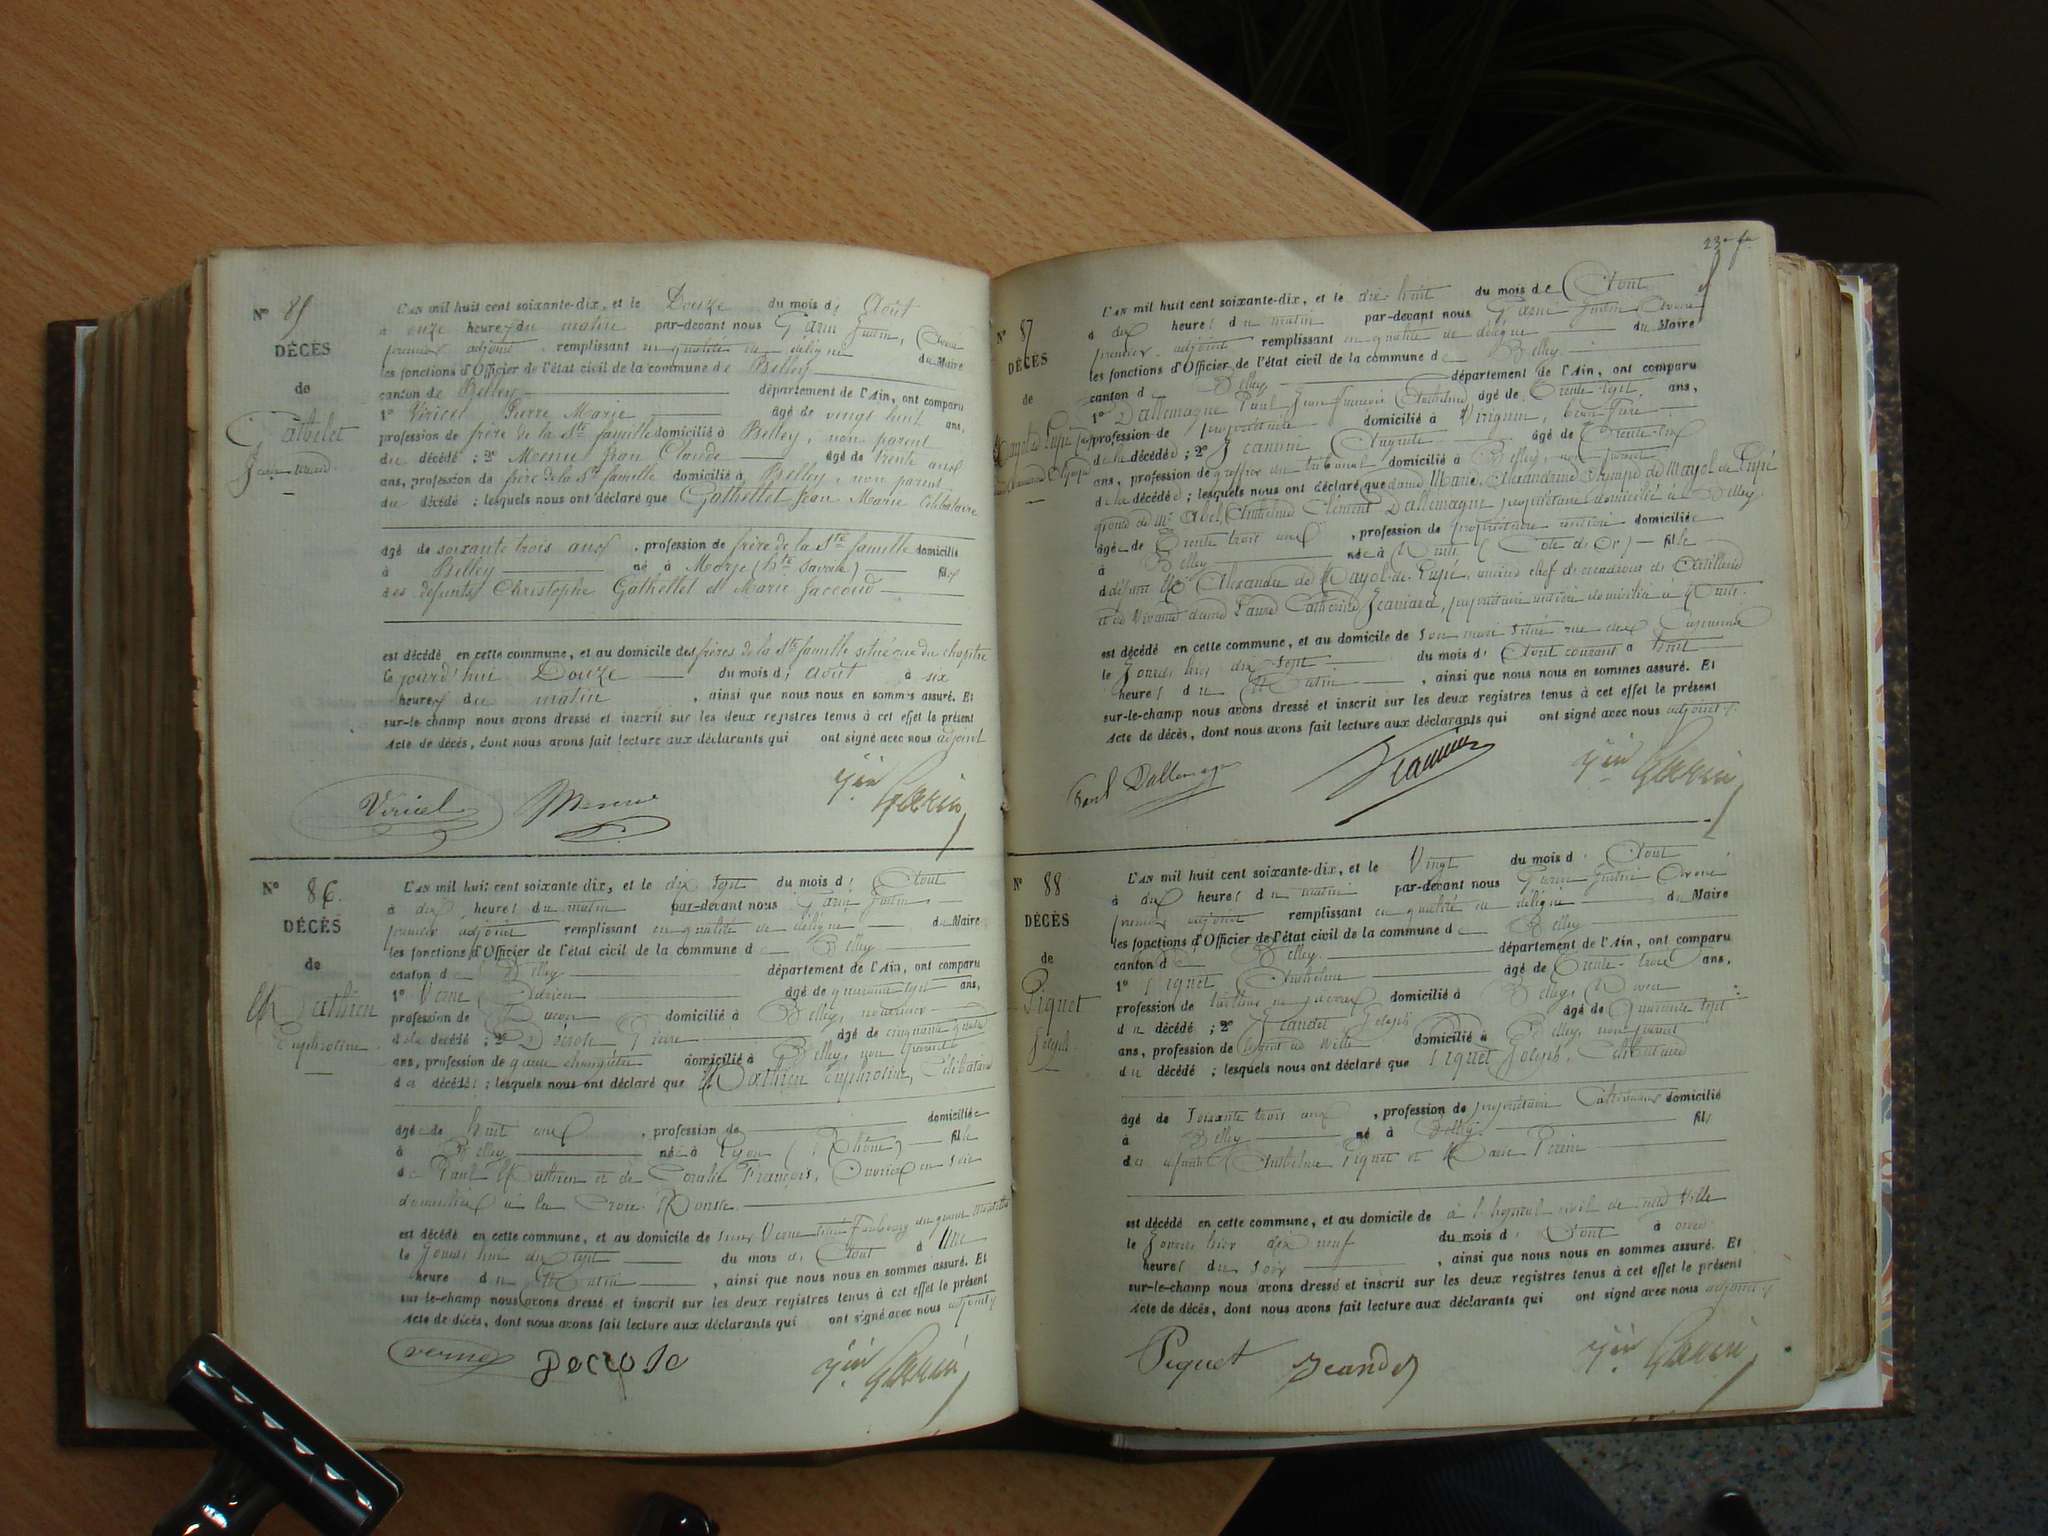 N° 85
DÉCÈS
de
Gathelet
Jean Marie
L'AN mil huit cent soixante-dix, et le Douze du mois d' Août
à onze heures du matin par-devant nous Garin Justin,
premier adjoint remplissant en qualité de délégué du Maire
les fonctions d'Officier de l'état civil de la commune de Belley
canton de Belley département de l'Ain, ont comparu
1° Viricel Pierre Marie âgé de vingt huit ans,
profession de frère de la Ste famille domicilié à Belley, non parent
du décédé ; 2° Mornu Jean Claude âgé de trente ans
ans, profession de frère de la Ste famille domicilié à Belley, non parent
du décédé ; lesquels nous ont déclaré que Gathellet Jean Marie Célibataire
âgé de soixante trois ans , profession de frère de la Ste famille domicilié
à Belley né à (hte Savoie) fils
des défunts Christophe Gathellet et Marie Jaccoud
est décédé en cette commune, et au domicile des frères de la Ste famille situé rue du chapitre
le jourd'hui Douze du mois d' août à six
heures du matin , ainsi que nous nous en sommes assuré. Et
sur-le-champ nous avons dressé et inscrit sur les deux registres tenus à cet effet le présent
Acte de décès, dont nous avons fait lecture aux déclarants qui ont signé avec nous adjoint
Viricel Garin
N° 86.
DÉCÈS
de
Mathieu
Euphrosine
L'AN mil huit cent soixante-dix, et le dix sept du mois d' Août
à dix heures du matin par-devant nous Garin Justin
premier adjoint remplissant en qualité de délégué du Maire
les fonctions d'Officier de l'état civil de la commune de Belley
canton de Belley département de l'Ain, ont comparu
1° Verne âgé de quarante sept ans,
profession de domicilié à Belley, nourricier
de la décédée ; 2° Décrose Pierre âgé de cinquante quatre
ans, profession de garde champêtre domicilié à Belley, non parent
de la décédée ; lesquels nous ont déclaré que Mathieu Euphrosine, Célibataire
âgée de huit ans , profession de domiciliée
à Belley née à Lyon (Rhône) fille
de Paul Mathieu et de Coralie François, Ouvriers en soie
domiciliés à la Croix Rousse
est décédé en cette commune, et au domicile de sieur Verne Faubourg du
le Jourd'hui dix sept du mois d' Août à une
heure du Matin , ainsi que nous nous en sommes assuré. Et
sur-le-champ nous avons dressé et inscrit sur les deux registres tenus à cet effet le présent
Acte de décès, dont nous avons fait lecture aux déclarants qui ont signé avec nous adjoint
Verne Decrose Garin
23e
N° 87
DÉCÈS
de
Mayol de Lupé
L'AN mil huit cent soixante-dix, et le dix huit du mois de Août
à dix heures du matin par-devant nous Garin Justin
premier adjoint remplissant en qualité de délégué du Maire
les fonctions d'Officier de l'état civil de la commune de Belley
canton de Belley département de l'Ain, ont comparu
1° Dallemagne Paul Jean François Anthelme âgé de Trente sept ans,
profession de propriétaire domicilié à Virignin, beau frère
de la décédée ; 2° Jeannin Auguste âgé de Trente six
ans, profession de greffier du tribunal domicilié à Belley, non parent
de la décédée ; lesquels nous ont déclaré que dame Marie, Alexandrine Olympe de Mayol de Lupé
épouse de Mr Abel, Anthelme Clément Dallemagne propriétaire domicilié à Belley
âgée de Trente trois ans , profession de propriétaire rentière domiciliée
à Belley née à Nuits (Côte d'Or) fille
de défunt Mr Alexandre de Mayol de Lupé, ancien chef d'escadron d'Artillerie
et de vivante dame Laure Catherine , propriétaire rentière domiciliée à Nuits
est décédé en cette commune, et au domicile de son mari située rue des Capucins
le Jour d'hier dix sept du mois d' Août courant à huit
heures du Matin , ainsi que nous nous en sommes assuré. Et
sur-le-champ nous avons dressé et inscrit sur les deux registres tenus à cet effet le présent
Acte de décès, dont nous avons fait lecture aux déclarants qui ont signé avec nous adjoint
Paul Dallemagne Jeannin Garin
N° 88
DÉCÈS
de
Piquet
Joseph
L'AN mil huit cent soixante-dix, et le Vingt du mois d' Août
à dix heures du matin par-devant nous Garin Justin
premier adjoint remplissant en qualité de délégué du Maire
les fonctions d'Officier de l'état civil de la commune de Belley
canton de Belley département de l'Ain, ont comparu
1° Piquet Anthelme âgé de Trente-trois ans,
profession de domicilié à Belley, Neveu
du décédé ; 2° Jeandet Joseph âgé de Quarante sept
ans, profession de sergent de ville domicilié à Belley, non parent
du décédé ; lesquels nous ont déclaré que Piquet Joseph, Célibataire
âgé de Soixante trois ans , profession de propriétaire Cultivateur domicilié
à Belley né à Belley fils
des défunts Anthelme Piquet et Marie
est décédé en cette commune, et au domicile de à l'hôpital civil de cette Ville
le Jour d'hier dix neuf du mois d' Août à onze
heures du soir , ainsi que nous nous en sommes assuré. Et
sur-le-champ nous avons dressé et inscrit sur les deux registres tenus à cet effet le présent
Acte de décès, dont nous avons fait lecture aux déclarants qui ont signé avec nous adjoint
Piquet Jeandet Garin